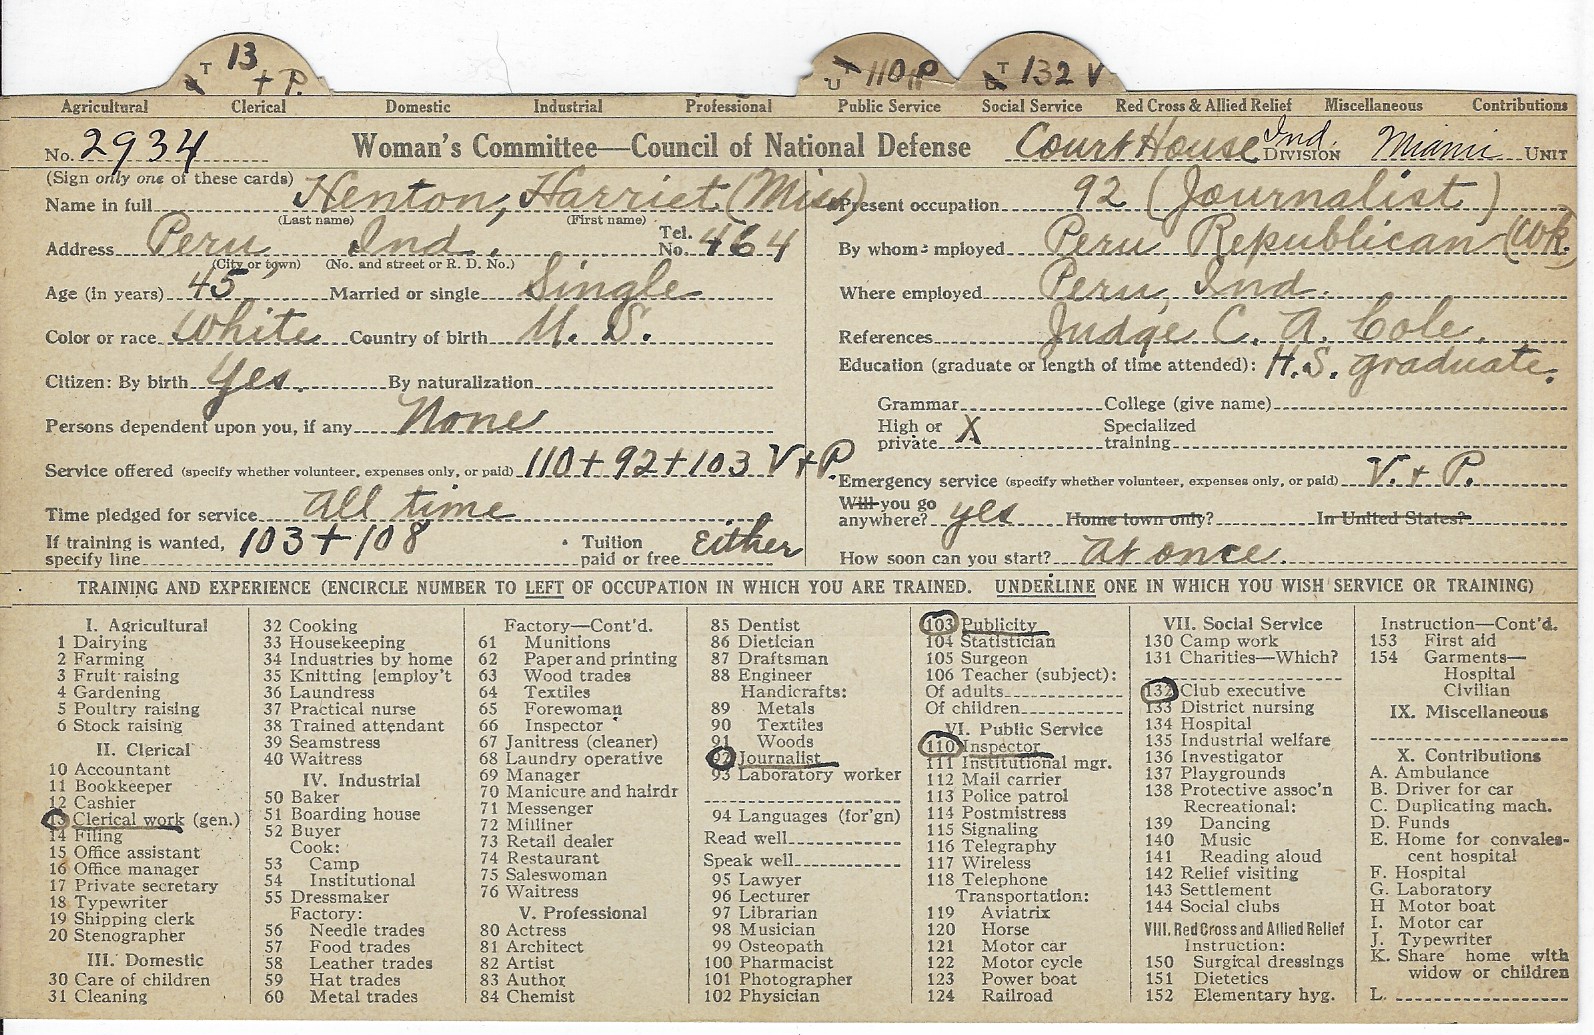 T 13 + P.
T 110 P
T 132 V
Agricultural Clerical Domestic Industrial Professional Public Service Social Service Red Cross & Allied Relief Miscellaneous Contributions
No. 2934 Woman's Committee—Council of National Defense Court House Ind. DIVISION Miami UNIT
(Sign only one of these cards)
Name in full Henton, Harriet (Miss)
(Last name) (First name)
Address Peru, Ind. Tel. No. 464
(City or town) (No. and street or R. D. No.)
Age (in years) 45 Married or single Single
Color or race White Country of birth U. S.
Citizen: By birth Yes. By naturalization
Persons dependent upon you, if any None
Service offered (specify whether volunteer, expenses only, or paid) 110 + 92 + 103 V + P.
Time pledged for service All time
If training is wanted, specify line 103 + 108 Tuition paid or free Either
Present occupation 92 (Journalist)
By whom employed Peru Republican (Wk.)
Where employed Peru, Ind.
References Judge C. A. Cole.
Education (graduate or length of time attended): H.S. graduate.
Grammar College (give name)
High or private X Specialized training
Emergency service (specify whether volunteer, expenses only, or paid) V. + P.
Will you go anywhere? yes Home town only? In United States?
How soon can you start? At once.
TRAINING AND EXPERIENCE (ENCIRCLE NUMBER TO LEFT OF OCCUPATION IN WHICH YOU ARE TRAINED. UNDERLINE ONE IN WHICH YOU WISH SERVICE OR TRAINING)
I. Agricultural
1 Dairying
2 Farming
3 Fruit raising
4 Gardening
5 Poultry raising
6 Stock raising
II. Clerical
10 Accountant
11 Bookkeeper
12 Cashier
13 Clerical work (gen.)
14 Filing
15 Office assistant
16 Office manager
17 Private secretary
18 Typewriter
19 Shipping clerk
20 Stenographer
III. Domestic
30 Care of children
31 Cleaning
32 Cooking
33 Housekeeping
34 Industries by home
35 Knitting [employ't
36 Laundress
37 Practical nurse
38 Trained attendant
39 Seamstress
40 Waitress
IV. Industrial
50 Baker
51 Boarding house
52 Buyer
Cook:
53 Camp
54 Institutional
55 Dressmaker
Factory:
56 Needle trades
57 Food trades
58 Leather trades
59 Hat trades
60 Metal trades
Factory—Cont'd.
61 Munitions
62 Paper and printing
63 Wood trades
64 Textiles
65 Forewoman
66 Inspector
67 Janitress (cleaner)
68 Laundry operative
69 Manager
70 Manicure and hairdr
71 Messenger
72 Milliner
73 Retail dealer
74 Restaurant
75 Saleswoman
76 Waitress
V. Professional
80 Actress
81 Architect
82 Artist
83 Author
84 Chemist
85 Dentist
86 Dietician
87 Draftsman
88 Engineer
Handicrafts:
89 Metals
90 Textiles
91 Woods
92 Journalist
93 Laboratory worker
94 Languages (for'gn)
Read well
Speak well
95 Lawyer
96 Lecturer
97 Librarian
98 Musician
99 Osteopath
100 Pharmacist
101 Photographer
102 Physician
103 Publicity
104 Statistician
105 Surgeon
106 Teacher (subject):
Of adults
Of children
VI. Public Service
110 Inspector
111 Institutional mgr.
112 Mail carrier
113 Police patrol
114 Postmistress
115 Signaling
116 Telegraphy
117 Wireless
118 Telephone
Transportation:
119 Aviatrix
120 Horse
121 Motor car
122 Motor cycle
123 Power boat
124 Railroad
VII. Social Service
130 Camp work
131 Charities—Which?
132 Club executive
133 District nursing
134 Hospital
135 Industrial welfare
136 Investigator
137 Playgrounds
138 Protective assoc'n
Recreational:
139 Dancing
140 Music
141 Reading aloud
142 Relief visiting
143 Settlement
144 Social clubs
VIII. Red Cross and Allied Relief
Instruction:
150 Surgical dressings
151 Dietetics
152 Elementary hyg.
Instruction—Cont'd.
153 First aid
154 Garments—
Hospital
Civilian
IX. Miscellaneous
X. Contributions
A. Ambulance
B. Driver for car
C. Duplicating mach.
D. Funds
E. Home for convales-
cent hospital
F. Hospital
G. Laboratory
H Motor boat
I. Motor car
J. Typewriter
K. Share home with
widow or children
L.